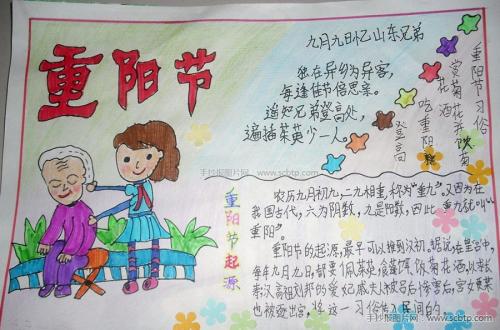 重阳节
九月九日忆山东兄弟
独在异乡为异客，
每逢佳节倍思亲。
遥知兄弟登高处，
遍插茱萸少一人。
重阳节习俗
赏菊花并饮菊
花酒
吃重阳糕
登高
手抄报图片网 . www.scbtp.com
重阳节起源
农历九月初九，二九相重，称为“重九”。又因为在
我国古代，六为阴数，九是阳数，因此，重九就叫“
重阳”。
重阳节的起源，最早可以推到汉初。据说在皇宫中，
每年九月九日，都要佩茱萸，食蓬饵，饮菊花酒，以求长
寿；汉高祖刘邦的爱妃戚夫人被吕后惨害后，宫女贾某
也被逐出宫，将这一习俗传入民间的。
手抄报图片网 www.scbtp.com